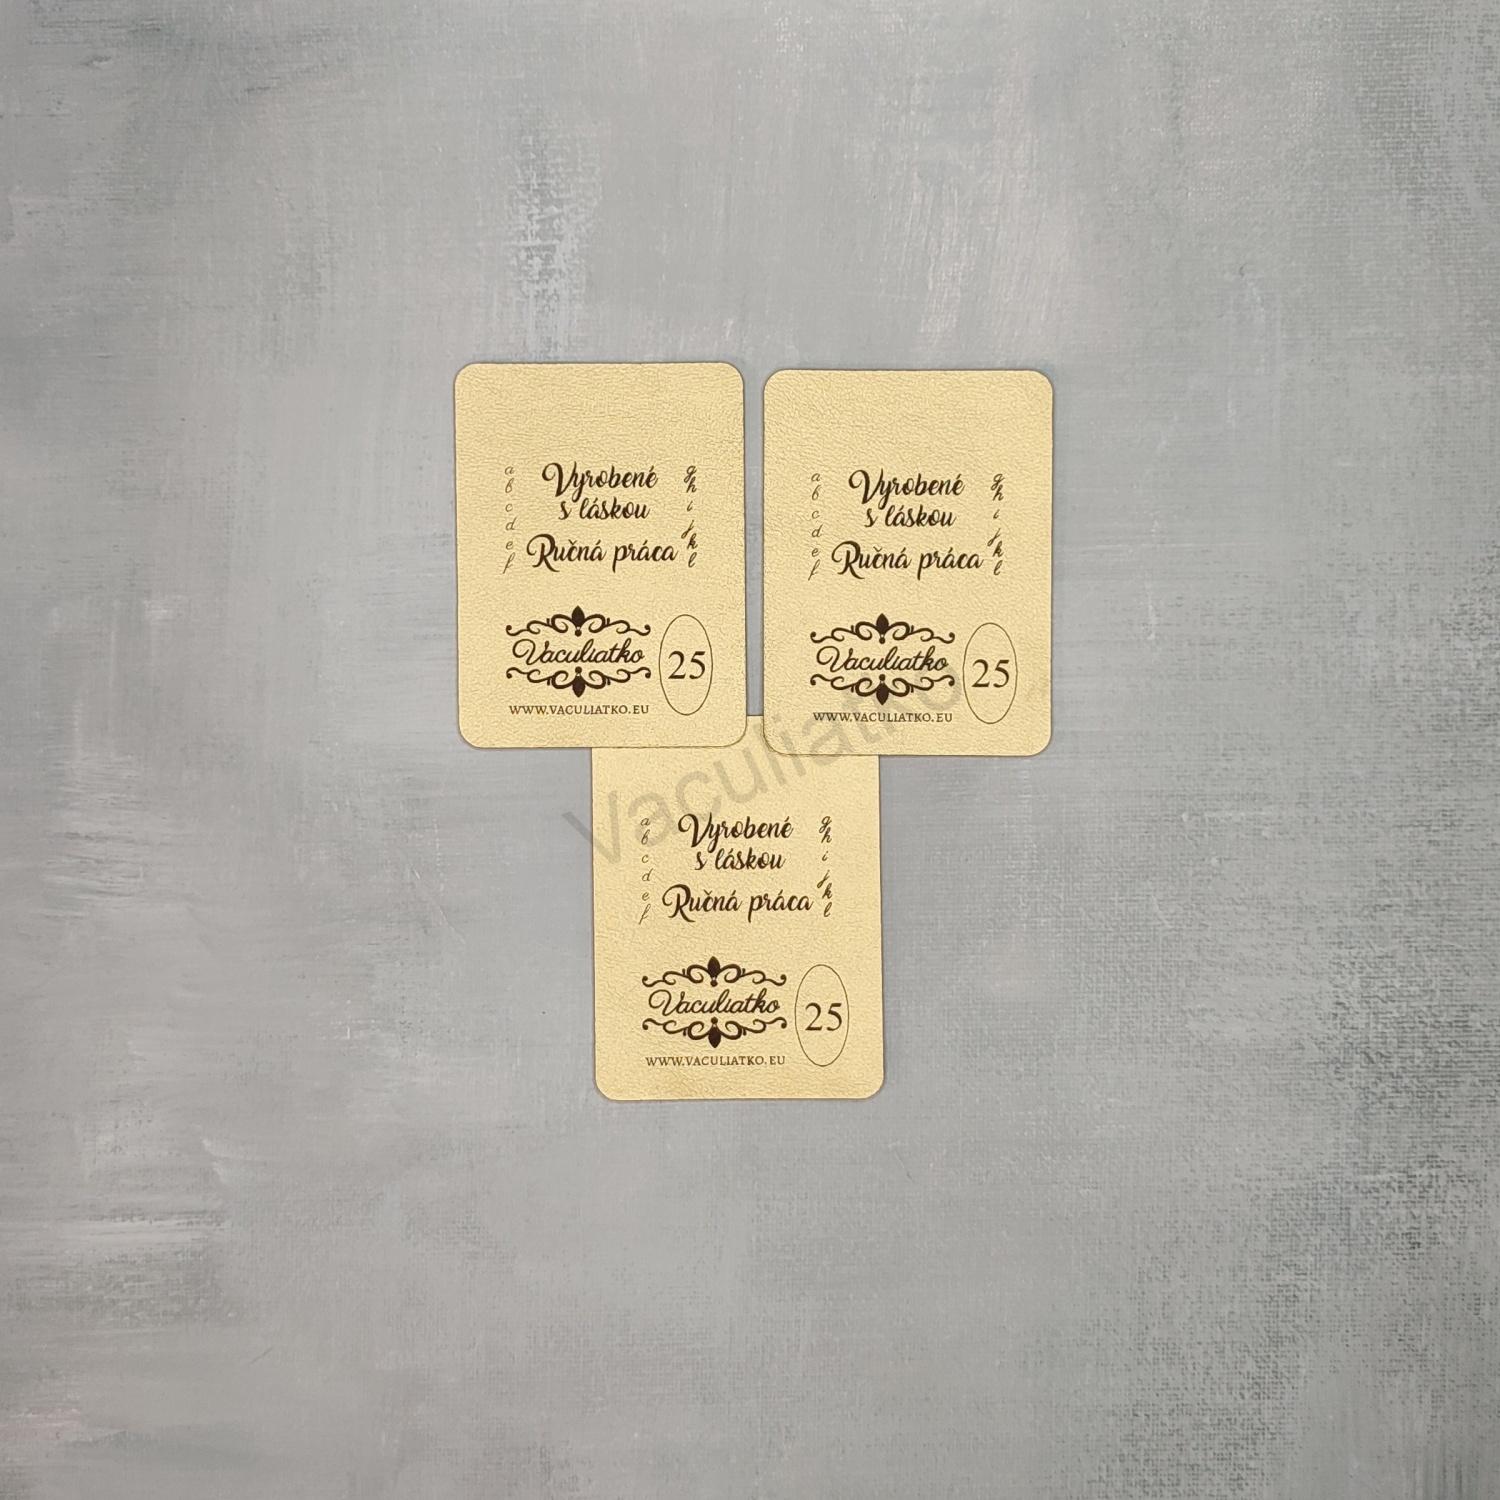 a
b
c
d
e
f
Vyrobené
s láskou
Ručná práca
g
h
i
j
k
l
Vaculiatko
25
WWW.VACULIATKO.EU
a
b
c
d
e
f
Vyrobené
s láskou
Ručná práca
g
h
i
j
k
l
Vaculiatko
25
WWW.VACULIATKO.EU
Vaculiatko
a
b
c
d
e
f
Vyrobené
s láskou
Ručná práca
g
h
i
j
k
l
Vaculiatko
25
WWW.VACULIATKO.EU